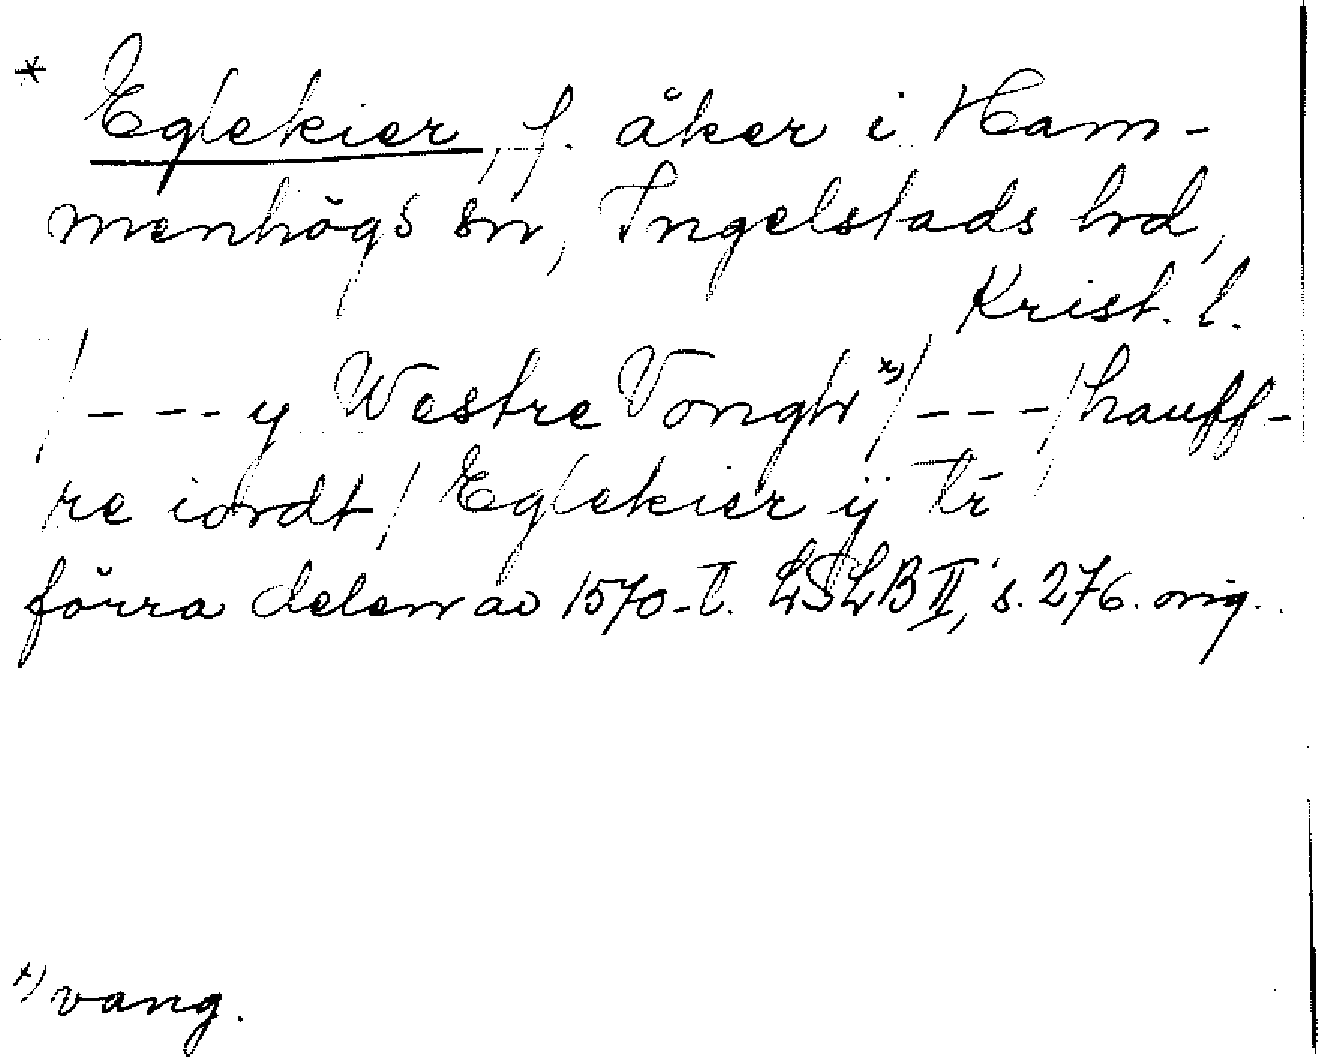 * Eglekier, f. åker i Ham-
menhögs sn, Ingelstads hd,
Krist. l.
/---y Westre Vongh x)/---/hauff-
re iordt/ Eglekier ÿ tí
förra delen av 1570-t. LSLB II, s. 276. orig.
x) vang.